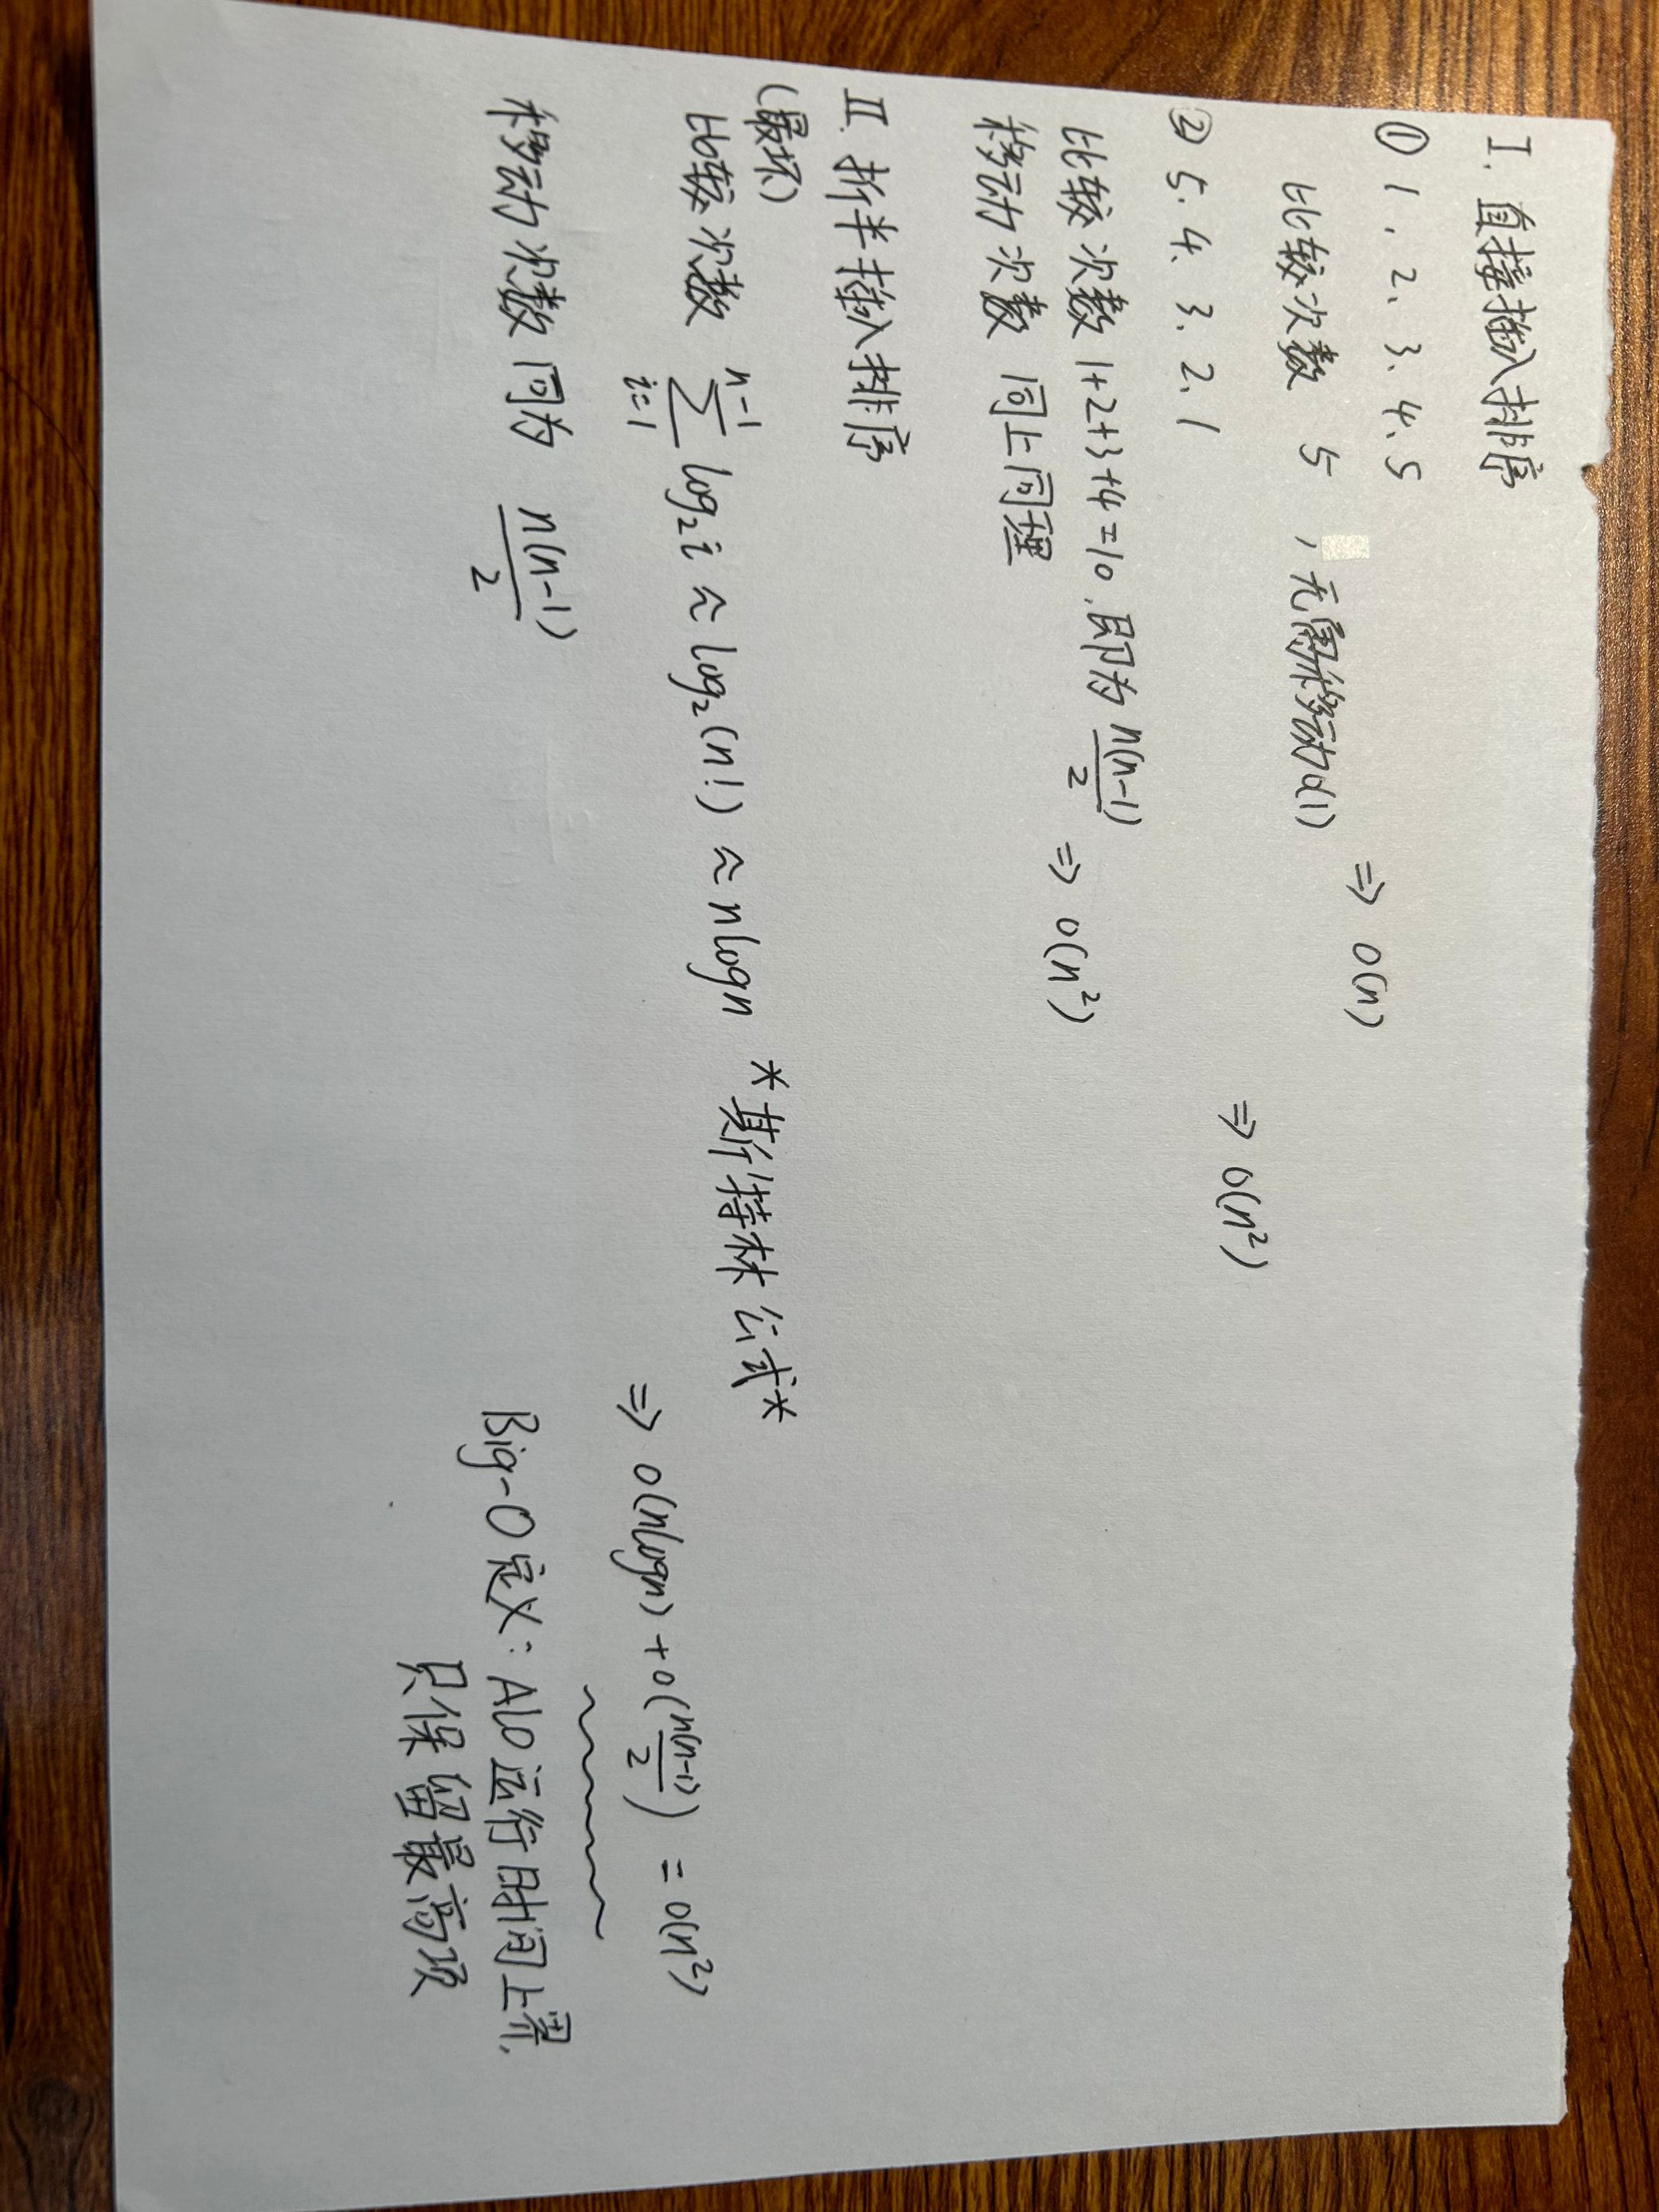 I. 直接插入排序
① 1、2、3、4、5
比较次数 5 , 无需移动O(1) ⇒ O(n)
⇒ O(n²)
② 5、4、3、2、1
比较次数 1+2+3+4=10，即为 n(n-1)/2 ⇒ O(n²)
移动次数 同上同理
II. 折半插入排序
(最坏)
比较次数 ∑_{i=1}^{n-1} log₂i ≈ log₂(n!) ≈ nlogn *斯特林公式*
⇒ O(nlogn) + O(n(n-1)/2) = O(n²)
移动次数 同为 n(n-1)/2
Big-O 定义: Alo运行时间上界,
只保留最高项